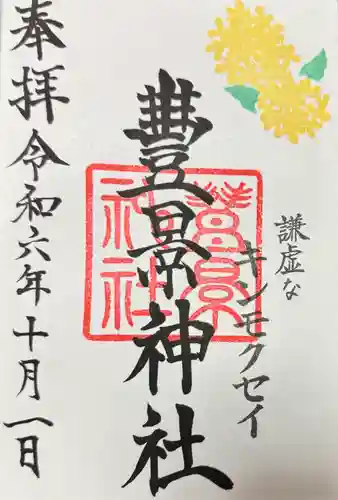 謙虚な
キンモクセイ
豊景神社
奉拝 令和六年十月一日
豊景神社